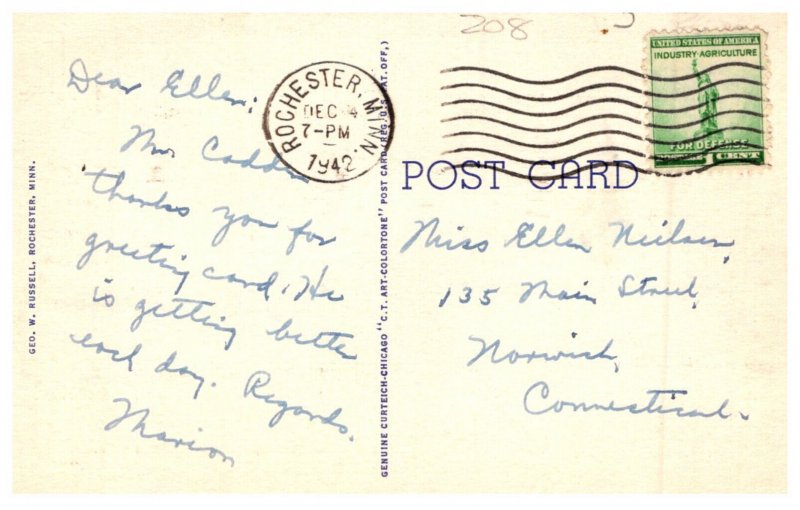 208
UNITED STATES OF AMERICA
INDUSTRY · AGRICULTURE
FOR DEFENSE
1 CENT
ROCHESTER, MINN.
DEC 4
7-PM
1942
POST CARD
Dear Ellen;
Mr. Cadden
thanks you for
greeting card. He
is getting better
each day. Regards.
Marion
Miss Ellen Nielsen,
135 Main Street,
Norwich,
Connecticut.
GEO. W. RUSSELL, ROCHESTER, MINN.
GENUINE CURTEICH-CHICAGO "C.T. ART-COLORTONE" POST CARD (REG. U.S. PAT. OFF.)